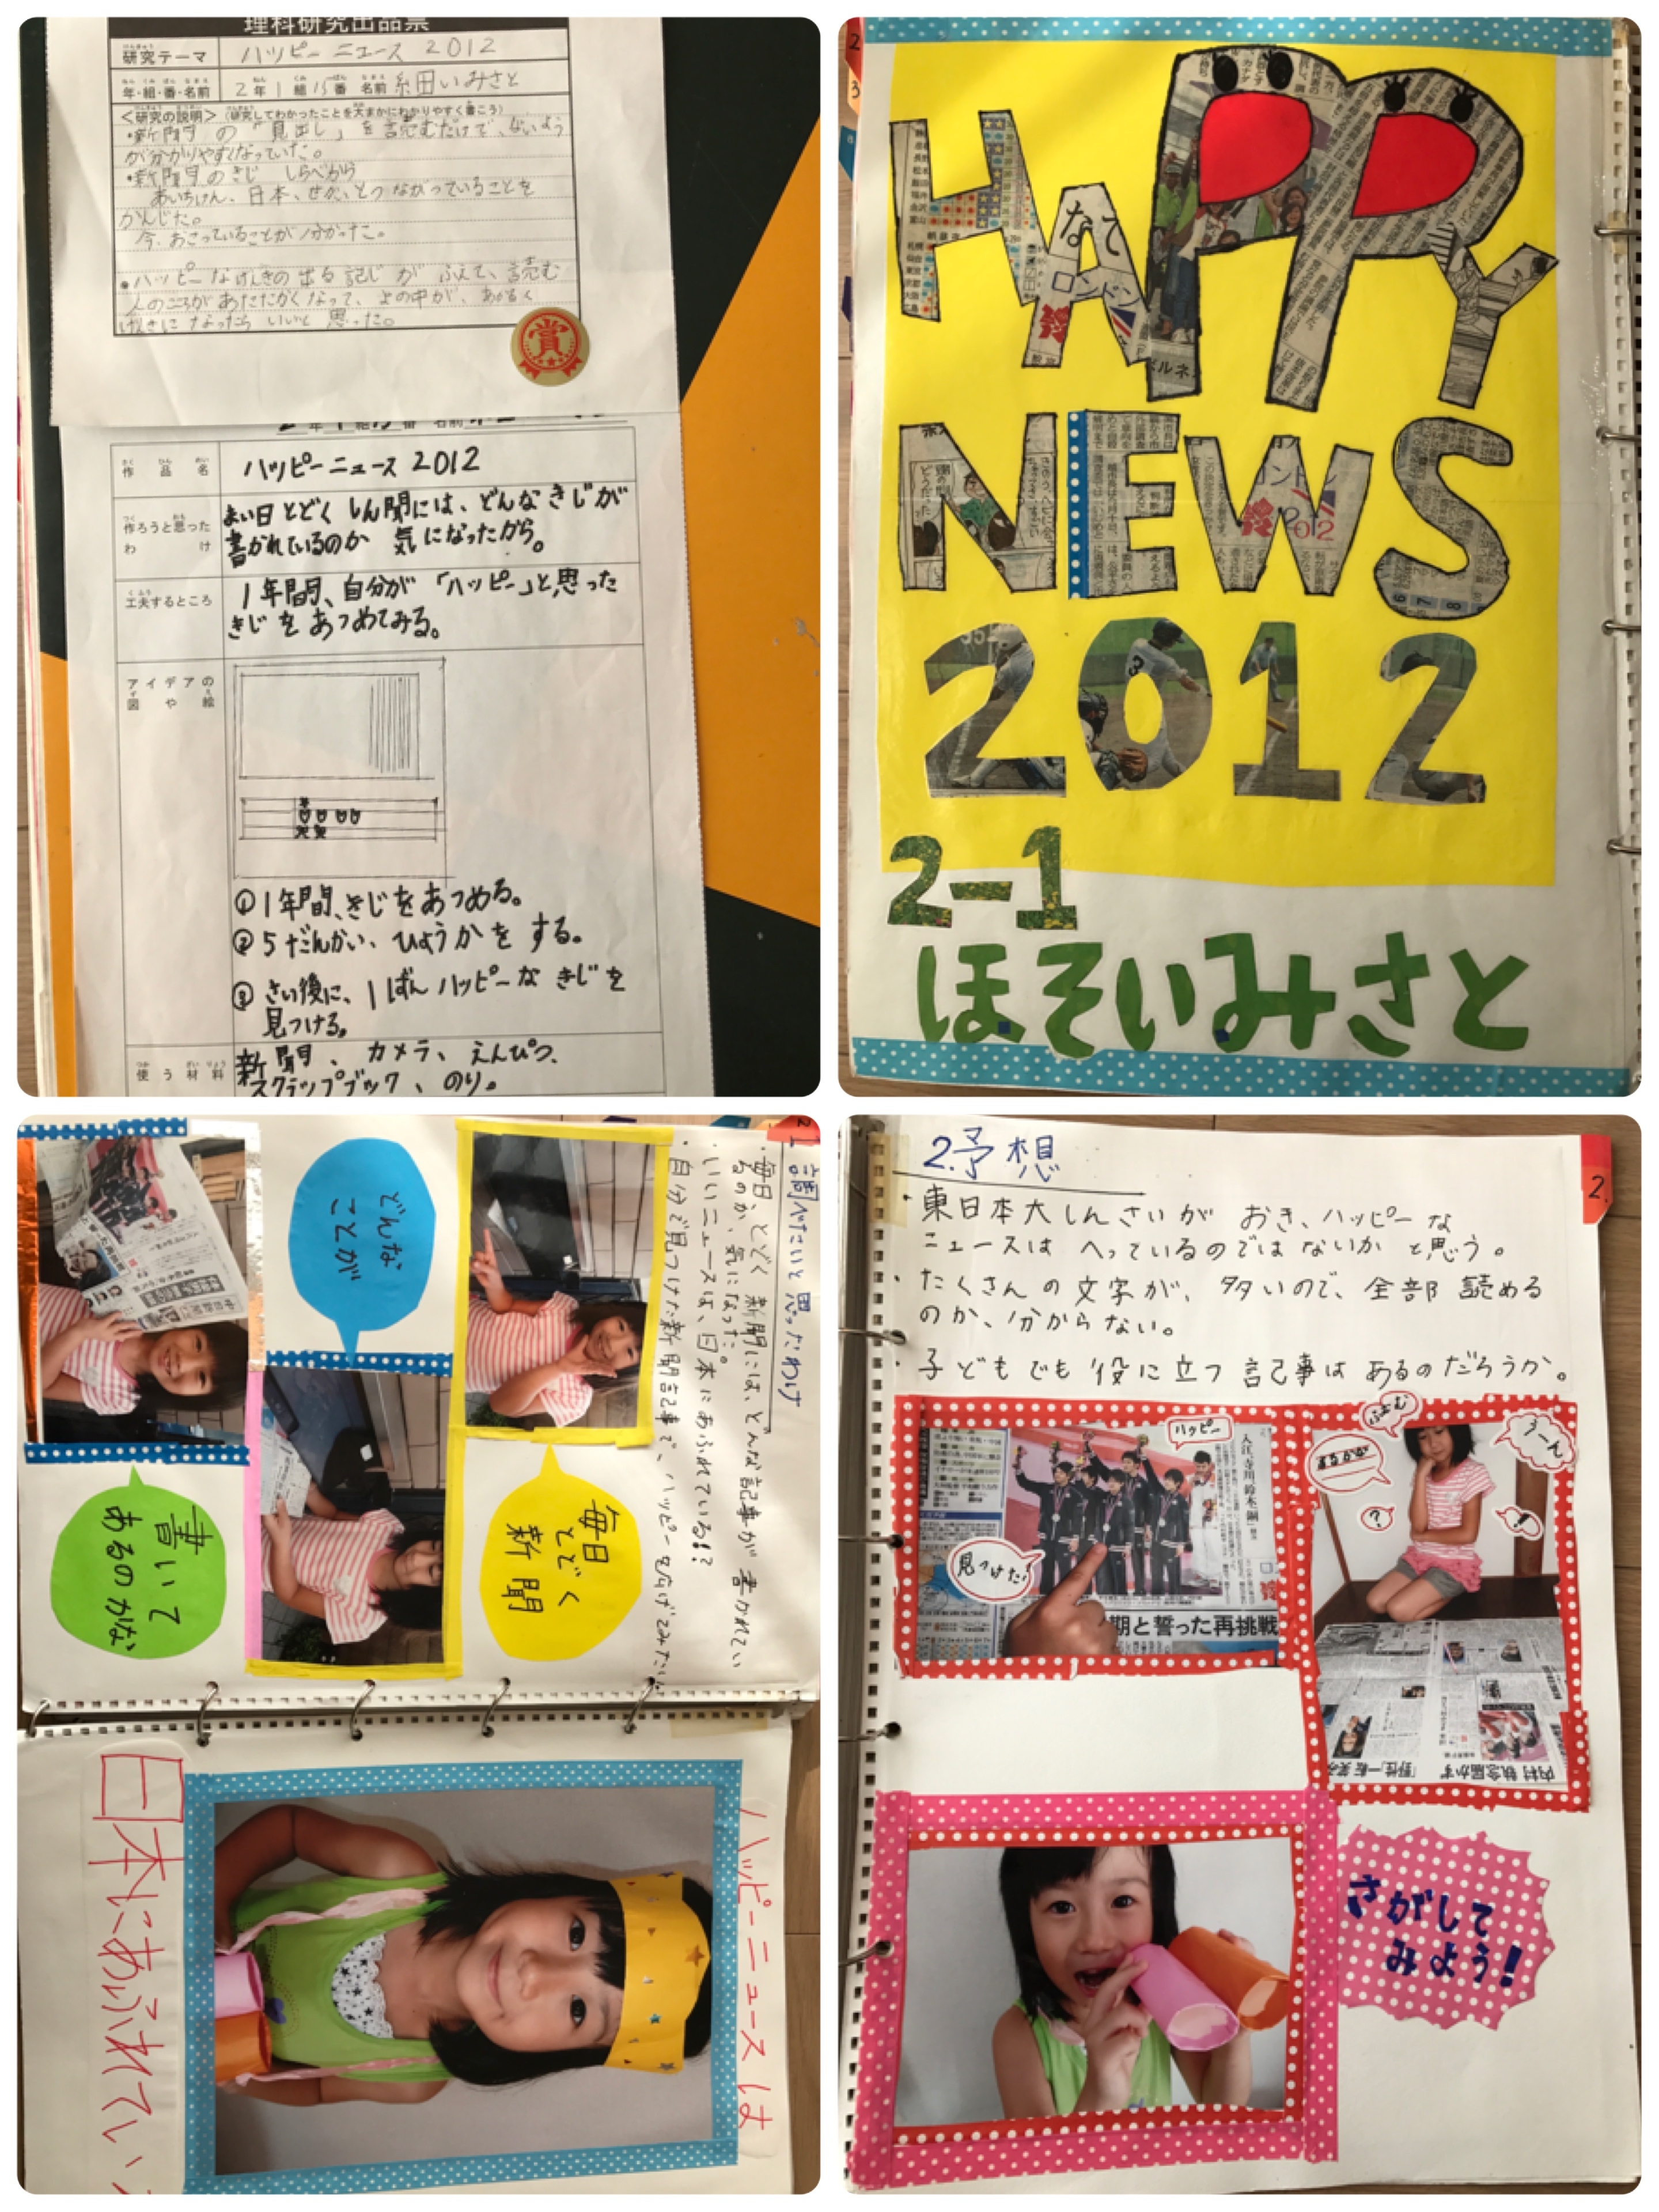 理科研究出品票
研究テーマ ハッピーニュース 2012
年・組・番・名前 2年1組15番 名前 細いみさと
<研究の説明>(研究してわかったことを大まかにわかりやすく書こう)
・新聞の「見出し」を読むだけで、ないよう
が分かりやすくなっていた。
・新聞のきじ しらべから
あいちけん、日本、せかいとつながっていることを
かんじた。
今、おこっていることが分かった。
・ハッピーなげんきの出る記じがふえて、読む
人のこころがあたたかくなって、よの中が、あかるく
げんきになったらいいと思った。
賞
作品名 ハッピーニュース2012
作ろうと思ったわけ
まい日とどくしん聞には、どんなきじが
書かれているのか 気になったから。
工夫するところ
1年間、自分が「ハッピー」と思った
きじをあつめてみる。
アイデアの図や絵
①1年間、きじをあつめる。
②5だんかい、ひょうかをする。
③さい後に、1ばんハッピーなきじを
見つける。
使う材料
新聞、カメラ、えんぴつ、
スクラップブック、のり。
HAPPY
NEWS
2012
2-1
ほそいみさと
なで
ロンドン
2012
1 調べたいと思ったわけ
・毎日、とどく新聞には、どんな記事が書かれてい
るのか、気になった。
・いいニュースは、日本にあふれている!?
・自分で見つけた新聞記事で、ハッピーを広げてみたい
毎日
とどく
新聞
どんな
ことが
書いて
あるのかな
ハッピーニュースは
日本にあふれてい
2.
2.予想
・東日本大しんさいがおき、ハッピーな
ニュースはへっているのではないかと思う。
・たくさんの文字が、多いので、全部読める
のか、分からない。
・子どもでも役に立つ記事はあるのだろうか。
ハッピー
見つけた!
期と誓った再挑戦
ふぅむ
うーん
あるかな
?
!
内村 執念届かず
さがして
みよう!